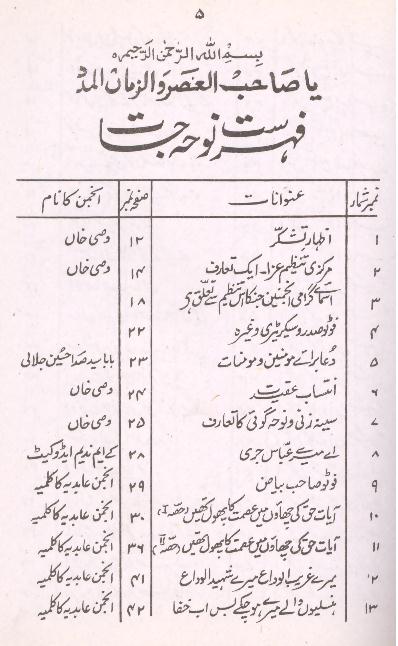 ۵
بِسْمِ اللهِ الرَّحْمٰنِ الرَّحِیْمِ
یا صَاحِبُ العَصر وَ الزمان المدد
فہرست نوحہ جات
نمبر شمار عنوانات صفحہ نمبر انجمن کا نام
۱ اظہارِ تشکّر ۱۲ وصی خاں
۲ مرکزی تنظیم عزا۔ ایک تعارف ۱۴ وصی خاں
۳ اسمائے گرامی انجمنیں جنکا اس تنظیم سے تعلّق ہے ۱۸
۴ فوٹو صدر و سیکریٹری وغیرہ ۲۲
۵ دُعا برائے مومنین و مومنات ۲۳ بابا سید صدا حسین جلالی
۶ انتساب عقیدت ۲۴ وصی خاں
۷ سینہ زنی و نوحہ گوئی کا تعارف ۲۵ وصی خاں
۸ اے میرے عبّاس جری ۲۸ کے ایم ندیم ایڈوکیٹ
۹ فوٹو صاحب بیاض ۲۹ انجمن عابدیہ کاظمیہ
۱۰ آیات حق کی چھاؤں میں عصمت کا پھول تھیں (حصّہ I) ۳۰ انجمن عابدیہ کاظمیہ
۱۱ آیات حق کی چھاؤں میں عصمت کا پھول تھیں (حصّہ II) ۳۶ انجمن عابدیہ کاظمیہ
۱۲ میرے غریب الوداع میرے شہید الوداع ۴۱ انجمن عابدیہ کاظمیہ
۱۳ ہنسلیوں والے میرے ہو چکے بس اب خفا ۴۲ انجمن عابدیہ کاظمیہ